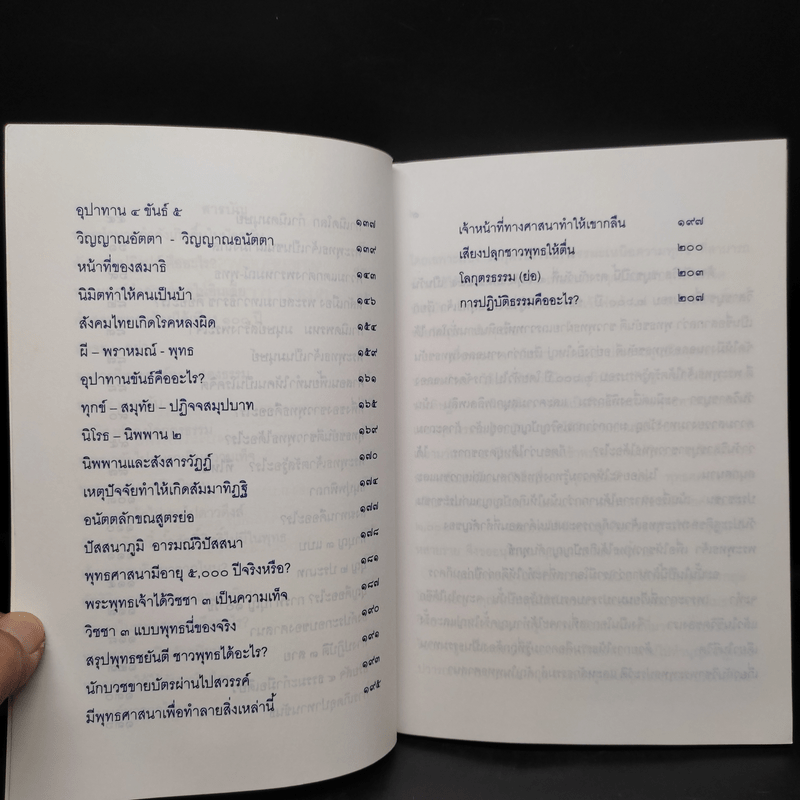 อุปาทาน ๔ ขันธ์ ๕ ๑๓๗
วิญญาณอัตตา - วิญญาณอนัตตา ๑๓๙
หน้าที่ของสมาธิ ๑๔๓
นิมิตทำให้คนเป็นบ้า ๑๔๖
สังคมไทยเกิดโรคหลงผิด ๑๕๔
ผี – พราหมณ์ - พุทธ ๑๕๙
อุปาทานขันธ์คืออะไร? ๑๖๑
ทุกข์ – สมุทัย – ปฏิจจสมุปบาท ๑๖๕
นิโรธ – นิพพาน ๒ ๑๖๙
นิพพานและสังสารวัฏฏ์ ๑๗๐
เหตุปัจจัยทำให้เกิดสัมมาทิฏฐิ ๑๗๔
อนัตตลักขณสูตรย่อ ๑๗๗
ปัสสนาภูมิ อารมณ์วิปัสสนา ๑๗๘
พุทธศาสนามีอายุ ๕,๐๐๐ ปีจริงหรือ? ๑๘๑
พระพุทธเจ้าได้วิชชา ๓ เป็นความเท็จ ๑๘๗
วิชชา ๓ แบบพุทธนี่ของจริง ๑๙๐
สรุปพุทธชยันตี ชาวพุทธได้อะไร? ๑๙๑
นักบวชขายบัตรผ่านไปสวรรค์ ๑๙๓
มีพุทธศาสนาเพื่อทำลายสิ่งเหล่านี้ ๑๙๕
เจ้าหน้าที่ทางศาสนาทำให้เขากลืน ๑๙๗
เสียงปลุกชาวพุทธให้ตื่น ๒๐๐
โลกุตรธรรม (ย่อ) ๒๐๓
การปฏิบัติธรรมคืออะไร? ๒๐๗